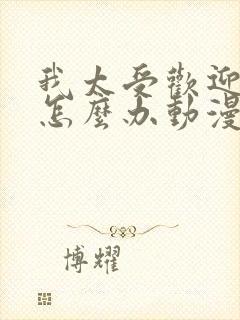 我太受歡迎
怎麼办動漫
博耀